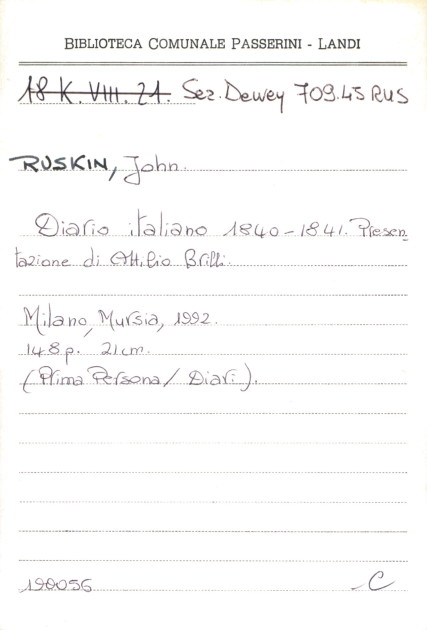 BIBLIOTECA COMUNALE PASSERINI - LANDI
18 K. VIII. 21. Sez. Dewey 709.45 RUS
RUSKIN, John.
Diario italiano 1840-1841. Presen
tazione di Attilio Brilli.
Milano, Mursia, 1992.
148 p. 21 cm.
(Prima Persona / Diari).
190056 C